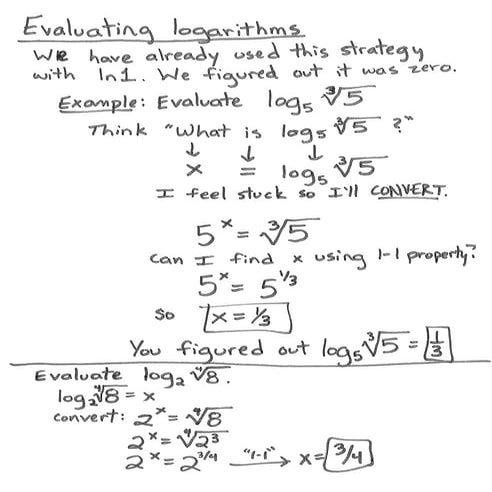 Evaluating logarithms
We have already used this strategy
with ln1. We figured out it was zero.
Example: Evaluate log₅ ∛5
Think "What is log₅ ∛5 ?"
↓ ↓ ↓
x = log₅ ∛5
I feel stuck so I'll CONVERT.
5ˣ = ∛5
Can I find x using 1-1 property?
5ˣ = 5^(1/3)
So x = 1/3
You figured out log₅ ∛5 = 1/3
Evaluate log₂ ∜8.
log₂ ∜8 = x
convert: 2ˣ = ∜8
2ˣ = ∜2³
2ˣ = 2^(3/4) "1-1" → x = 3/4